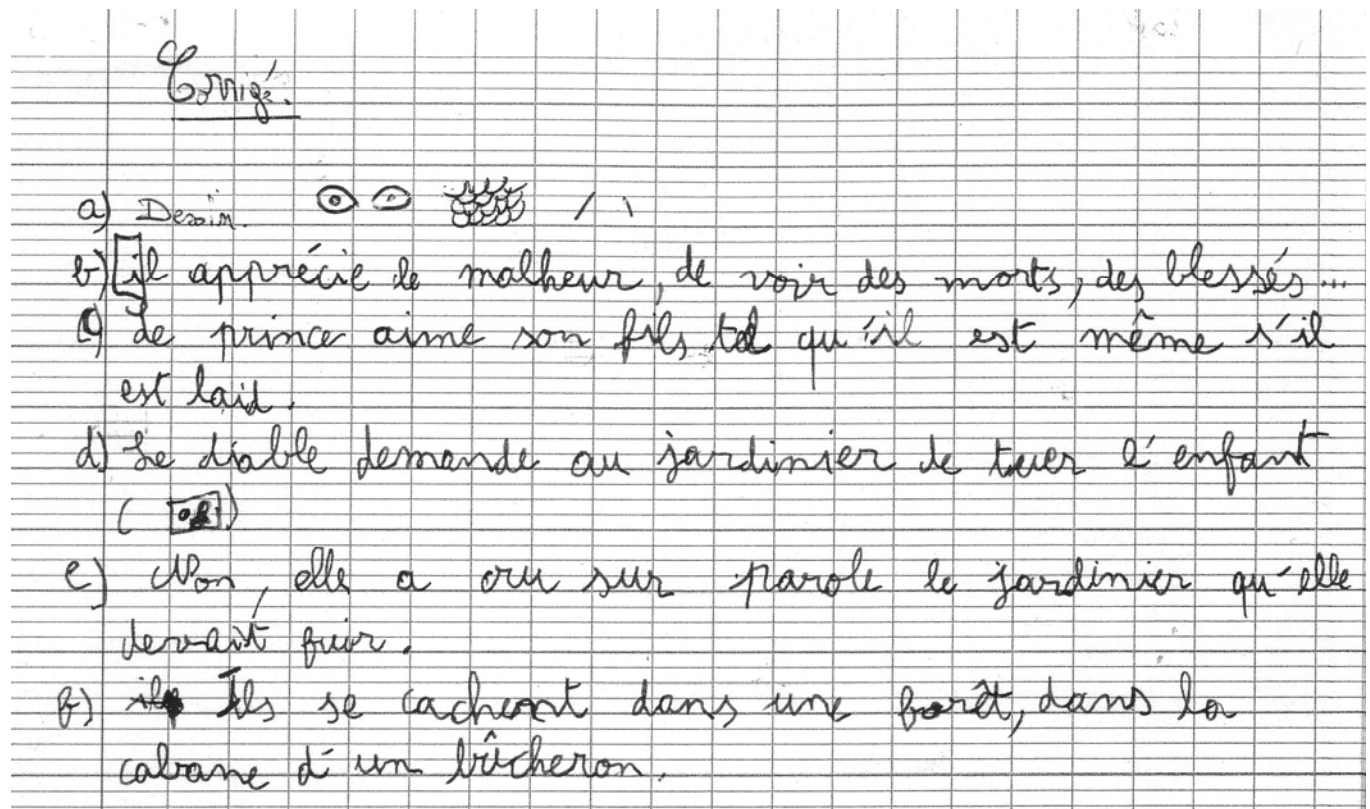 Corrigé.
a) Dessin.
b) il apprécie le malheur, de voir des morts, des blessés...
c) Le prince aime son fils tel qu'il est même s'il
est laid.
d) Le diable demande au jardinier de tuer l'enfant
(      )
e) Non, elle a cru sur parole le jardinier qu'elle
devait fuir.
f) Ils se cachent dans une forêt, dans la
cabane d'un bûcheron.